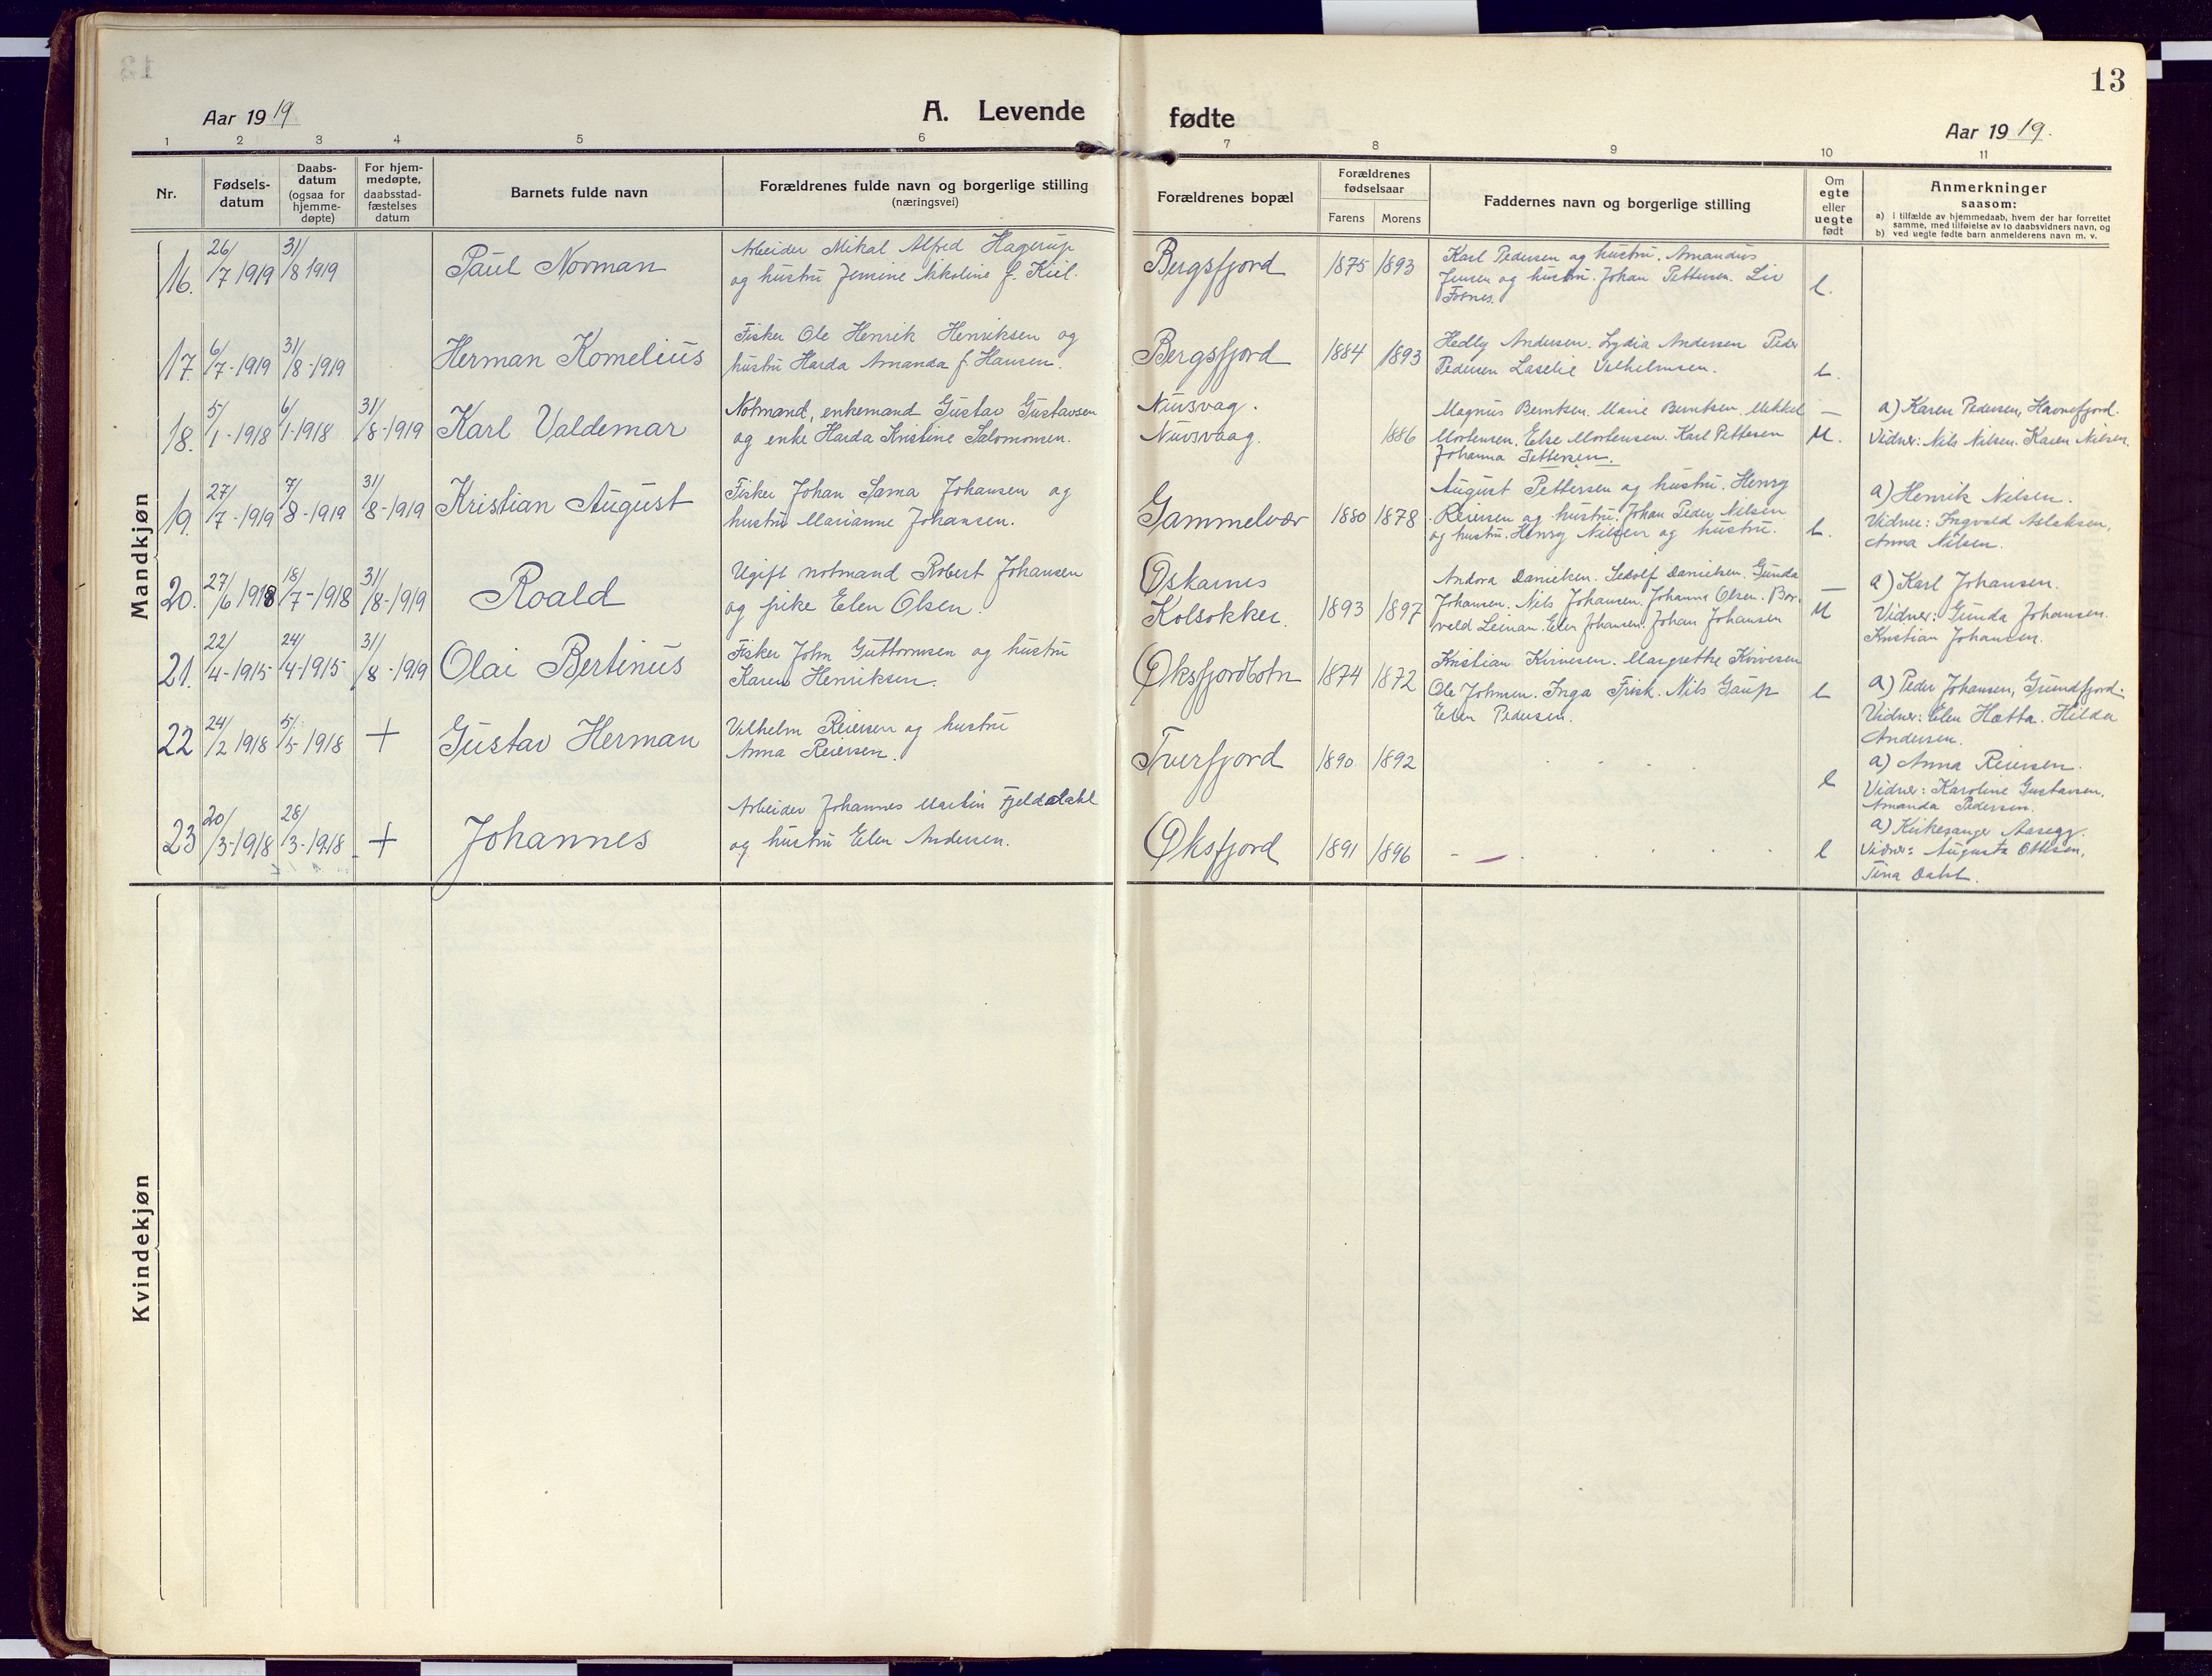 13
Aar 1919
A. Levende fødte
Aar 1919.
1 2 3 4 5 6 7 8 9 10 11
Nr.
Fødsels-
datum
Daabs-
datum
(ogsaa for
hjemme-
døpte)
For hjem-
medøpte,
daabsstad-
fæstelses
datum
Barnets fulde navn
Forældrenes fulde navn og borgerlige stilling
(næringsvei)
Forældrenes bopæl
Forældrenes
fødselsaar
Farens Morens
Faddernes navn og borgerlige stilling
Om
egte
eller
uegte
født
Anmerkninger
saasom:
a) i tilfælde av hjemmedaab, hvem der har forrettet
samme, med tilføielse av to daabsvidners navn, og
b) ved uegte fødte barn anmelderens navn m. v.
Mandkjøn
16. 26/7 1919 31/8 1919 Paul Norman
Arbeider Mikal Alfred Hagerup
og hustru Jemine Nikoline f. Kiil.
Bergsfjord 1875 1893
Karl Pedersen og hustru. Amandus
Jensen og hustru. Johan Pettersen. Liv
Fosnes.
e.
17. 6/7-1919 31/8-1919 Herman Kornelius
Fisker Ole Henrik Henriksen og
hustru Harda Amanda f. Hansen.
Bergsfjord 1884 1893
Hedly Andersen. Lydia Andersen Peder
Pedersen Vilhelmsen.
e.
18. 5/1-1918 6/1-1918 31/8-1919 Karl Valdemar
Notmand, enkemand Gustav Gustavsen
og enke Harda Kristine Salomonsen.
Nuvsvag.
Nuvsvaag. 1886
Magnus Berntsen. Marie Berntsen. Mikkel
Mortensen. Else Mortensen. Karl Pettersen
Johanna Pettersen.
— U.
a) Karen Pedersen, Havnefjord.
Vidner: Nils Nilsen. Karen Nilsen.
19. 27/7-1919 7/8-1919 31/8-1919 Kristian August
Fisker Johan Sama Johansen og
hustru Marianne Johansen.
Gammelvær 1880 1878
August Pettersen og hustru. Henry
Reiersen og hustru. Johan Peder Nilsen
og hustru. Henry Nilsen og hustru.
e.
a) Henrik Nilsen.
Vidner: Ingvald Aslaksen,
Anna Nilsen.
20. 27/6 1918 18/7-1918 31/8-1919 Roald
Ugift notmand Robert Johansen
og pike Elen Olsen.
Øskarnes
Kolsokker. 1893 1897
Andora Danielsen. Sedolf Danielsen. Gunda
Johansen. Nils Johansen. Johanna Olsen. Bor-
vald Leinan. Elen Johansen. Johan Johansen
— U
a) Karl Johansen.
Vidner: Gunda Johansen.
Kristian Johansen.
21. 22/4-1915 24/4-1915 31/8-1919 Olai Bertinus
Fisker John Guttormsen og hustru
Karen Henriksen.
Øksfjordbotn 1874 1872
Kristian Kivivesen. Margrethe Kvivesen
Ole Johnsen. Inga Frisk. Nils Gaup
Elen Pedersen.
e
a) Peder Johansen, Grundfjord.
Vidner: Elen Hætta. Hilda
Andersen.
22 24/2 1918 5/5-1918 + Gustav Herman
Vilhelm Reiersen og hustru
Anna Reiersen.
Tverfjord 1890 1892
e
a) Anna Reiersen.
Vidner: Karoline Gustavsen,
Amanda Pedersen.
23 20/3-1918 28/3-1918 + Johannes
Arbeider Johannes Martin Fjelddahl
og hustru Elen Andersen.
Øksfjord 1891 1896 —
e
a) Kirkesanger Aasegg.
Vidner: Augusta Ottesen,
Tina Dahl.
Kvindekjøn